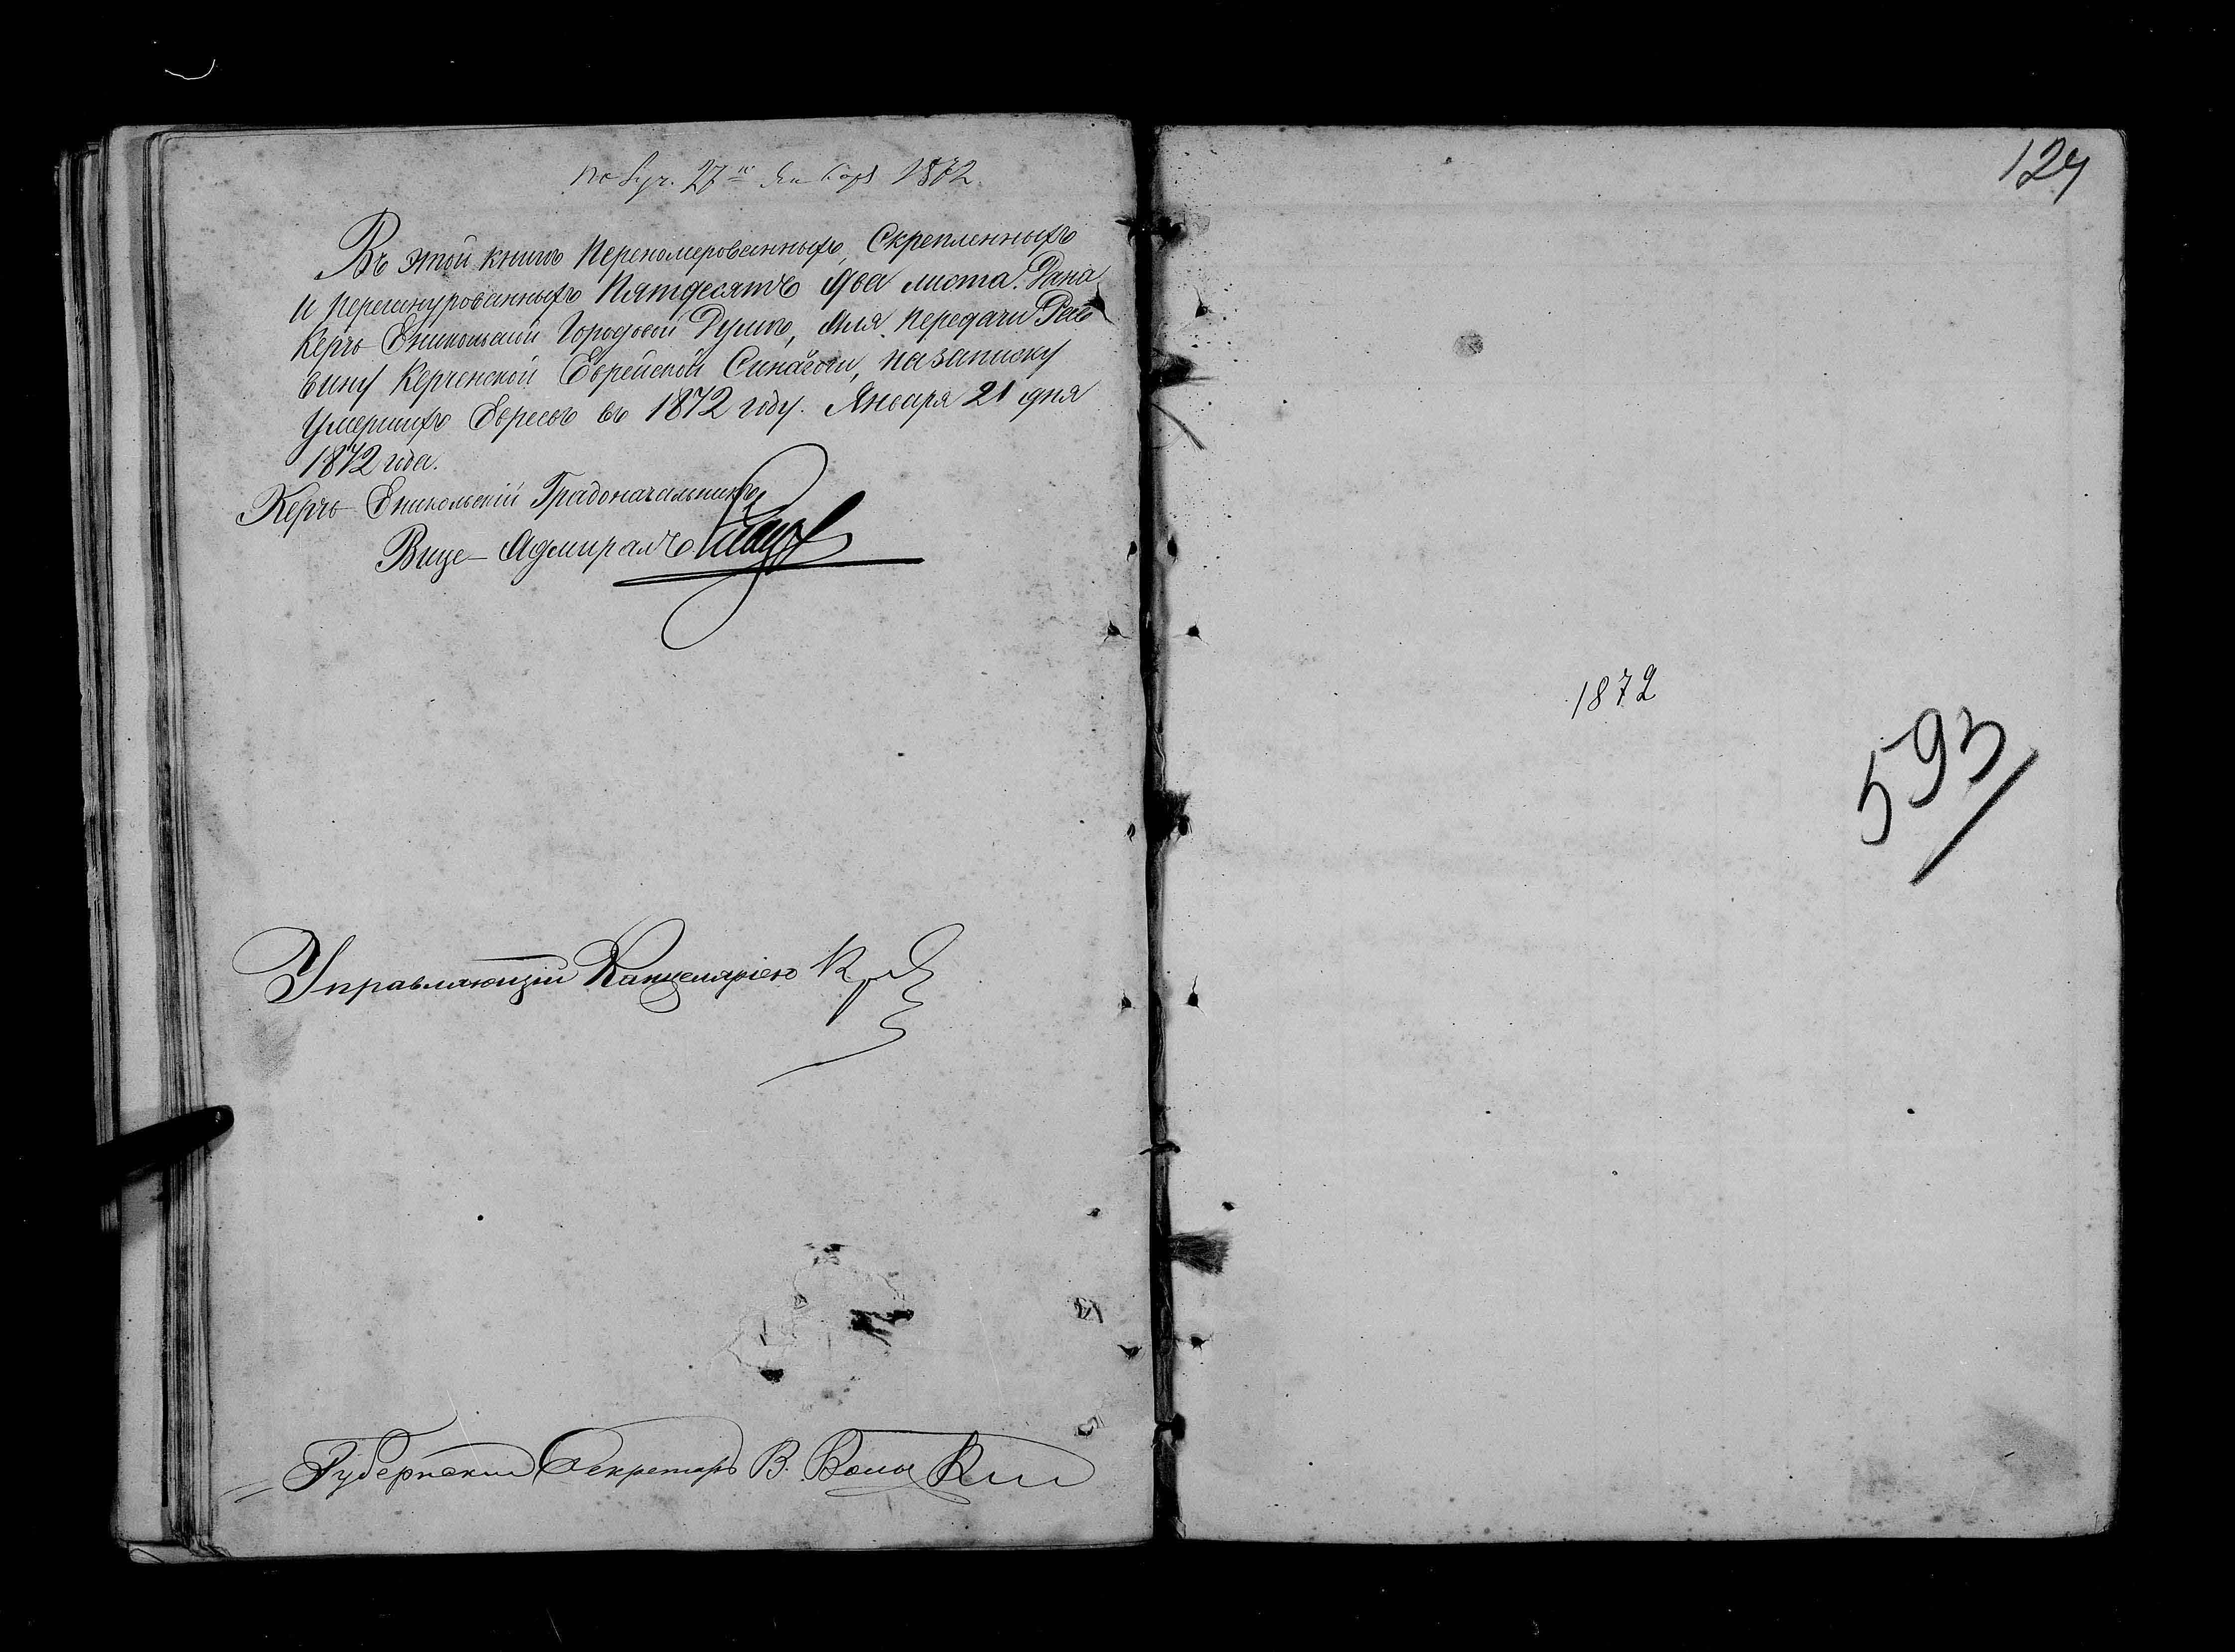 27го Января 1872
Въ этой книгѣ переномерованныхъ, скрепленныхъ
и перешнурованныхъ пятдесятъ два листа. Дана
Керчь Еникольской Городской Думѣ, для передачи Рав
вину Керченской Еврейской Синагоги, на записку
умершихъ Евреевъ въ 1872 году. Января 21 дня
1872 года.
Керчь-Еникольскій Градоначальникъ,
Вице-Адмиралъ
Управляющій Канцеляріею
Губернскій Секретарь В.
1872
593